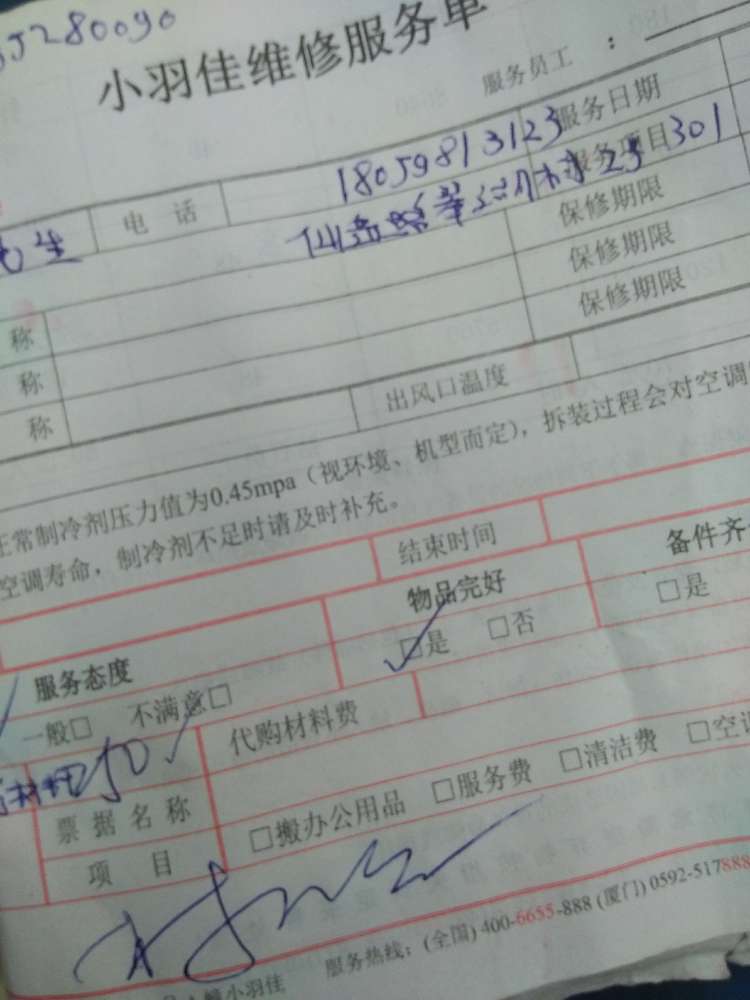 5J280090
小羽佳维修服务单
服务员工 ：
服务日期
18059813123
电 话
服务项目
2号301
生
保修期限
称
保修期限
称
保修期限
称
出风口温度
正常制冷剂压力值为0.45mpa（视环境、机型而定），拆装过程会对空调
空调寿命，制冷剂不足时请及时补充。
结束时间
物品完好
备件齐
服务态度
□是 □否
□是
一般□ 不满意□
代购材料费
票据名称
□搬办公用品 □服务费 □清洁费 □空调
项 目
服务热线：(全国) 400-6655-888 (厦门) 0592-517888
小羽佳